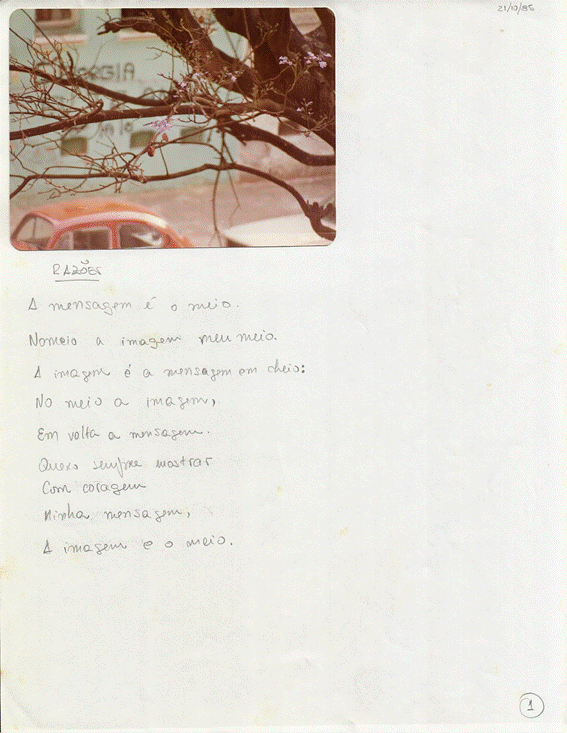 21/10/85
RAZÕES
A mensagem é o meio.
Nomeio a imagem meu meio.
A imagem é a mensagem em cheio:
No meio a imagem,
Em volta a mensagem.
Quero sempre mostrar
Com coragem
Minha mensagem,
A imagem é o meio.
1